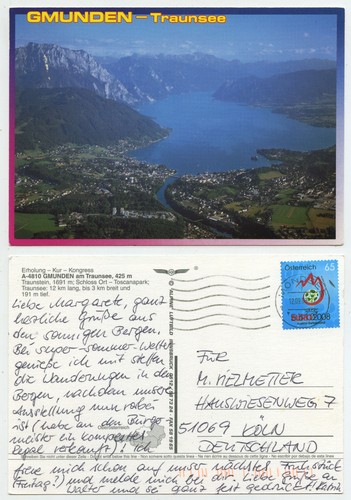 GMUNDEN – Traunsee
Erholung – Kur – Kongress
A-4810 GMUNDEN am Traunsee, 425 m
Traunstein, 1691 m; Schloss Ort – Toscanapark;
Traunsee: 12 km lang, bis 3 km breit und
191 m tief.
Liebe Margarete, ganz
herzliche Grüße aus
den sonnigen Bergen.
Bei super-sommer-Wetter
genieße ich mit
die Wanderungen in den
Bergen, nachdem unsere
Ausstellung nun vorbei
ist (habe an den Bürger-
meister ein komplettes
verkauft). Ich
freue mich schon auf unser nächstes Frühstück
(Freitag?) und melde mich bei dir. Liebe Grüße an
und sei ganz fest gedrückt
ALPINE LUFTBILD INNSBRUCK
Österreich 65
EURO 2008
FÜR
M. 
HAUSWIESENWEG 7
51069 KÖLN
DEUTSCHLAND